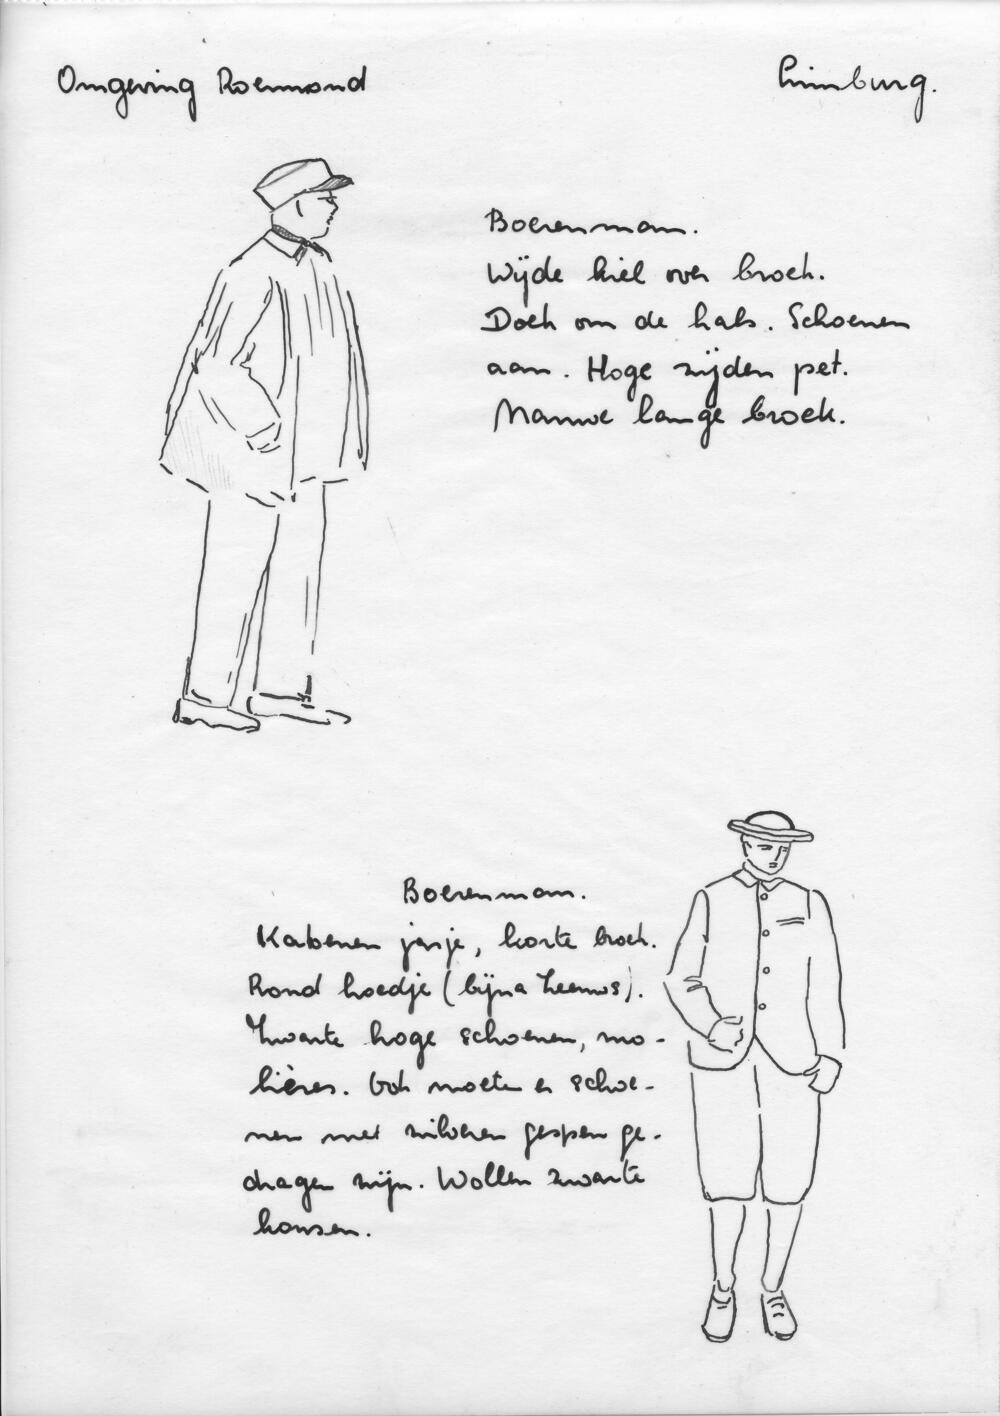 Omgeving Roermond
Limburg.
Boerenman.
Wijde kiel over broek.
Doek om de hals. Schoenen
aan. Hoge zijden pet.
Nauwe lange broek.
Boerenman.
Katoenen jasje, korte broek.
Rond hoedje (bijna Zeeuws).
Zwarte hoge schoenen, mo-
lières. Ook moeten er schoe-
nen met zilveren gespen ge-
dragen zijn. Wollen zwarte
kousen.